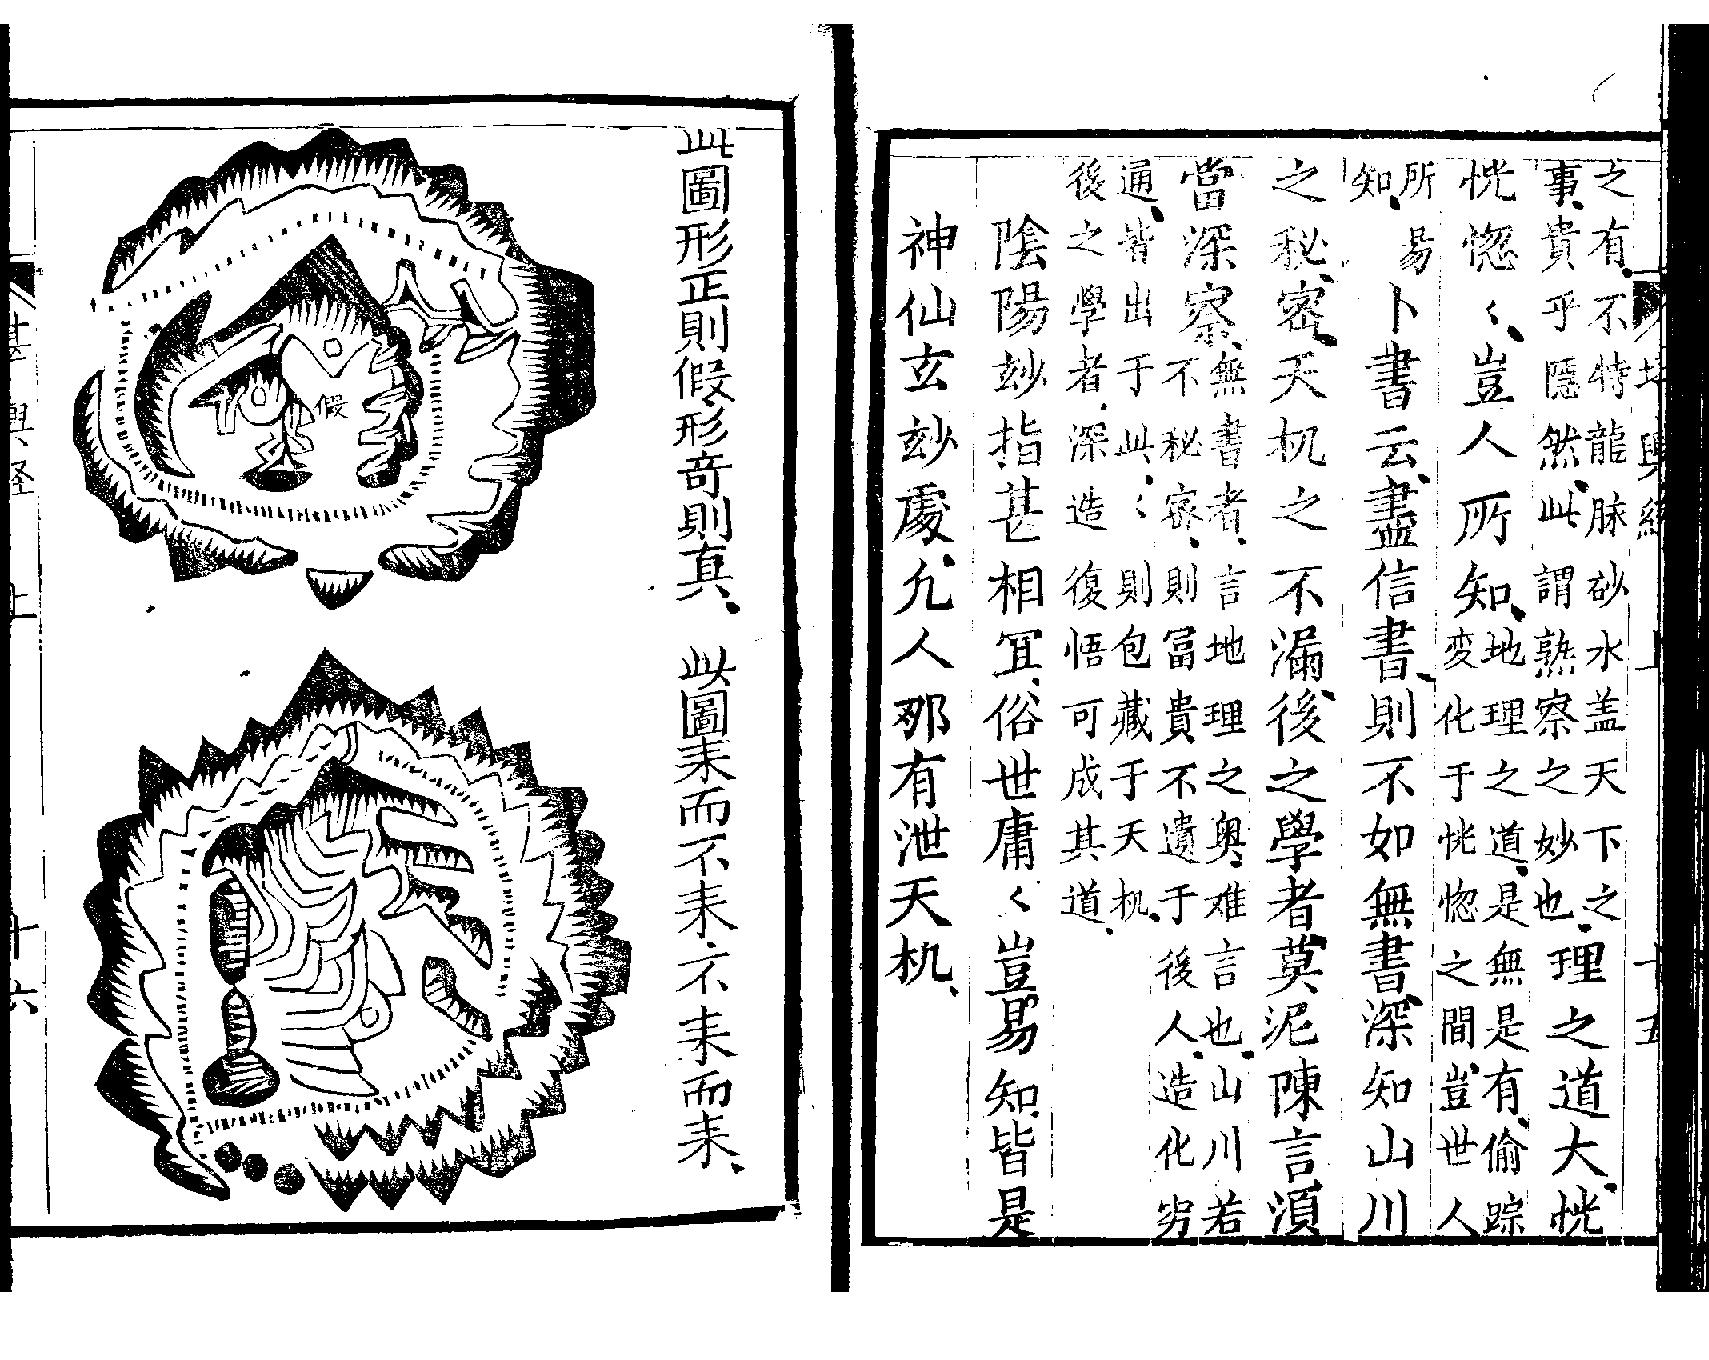 之有、不特龍脉砂水盖天下之
事、貴乎隱然、此謂熟察之妙也、理之道大、恍
恍惚〻、豈人所知、地理之道、是無是有、偷踪
変化于恍惚之間、豈世人
所易
知、卜書云、盡信書、則不如無書、深知山川
之秘、密、天机之不漏、後之學者、莫泥陳言、湏
當深察、無書者、言地理之奥、难言也、山川若
不秘密、則冨貴不遺于後人、造化穷
通、皆出于此、〻則包藏于天机、
後之學者、深造復悟可成其道、
陰陽玅指甚相冝、俗世庸〻豈易知、皆是
神仙玄玅處、允人那有泄天机、
輿經 上 十五
此圖形正則假、形竒則真、
此圖耒而不耒、不耒而耒、
假
輿 上 十六